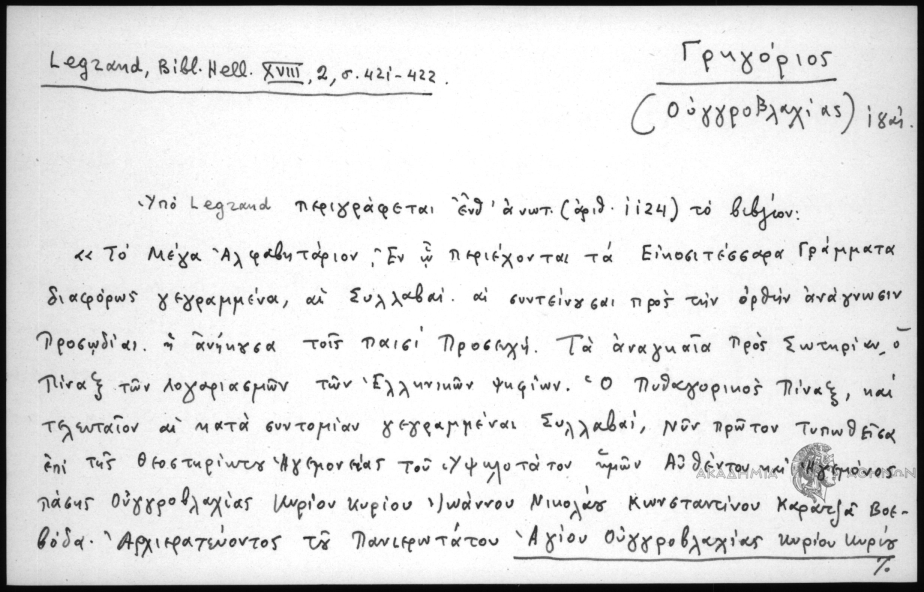 Legrand, Bibl. Hell. XVIII, 2, σ. 421-422.
Γρηγόριος
(Οὑγγροβλαχίας)
Ὑπὸ Legrand περιγράφεται ἔνθ' ἀνωτ. (ἀριθ. 1124) τὸ βιβλίον:
«Τὸ Μέγα Ἀλφαβητάριον, Ἐν ᾧ περιέχονται τὰ Εἰκοσιτέσσαρα Γράμματα
διαφόρως γεγραμμένα, αἱ Συλλαβαί. αἱ συντείνουσαι πρὸς τὴν ὀρθὴν ἀνάγνωσιν
Προσῳδίαι. ἡ ἀνήκουσα τοῖς παισὶ Προσευχή. Τὰ ἀναγκαῖα πρὸς Σωτηρίαν, ὁ
Πίναξ τῶν λογαριασμῶν τῶν Ἑλληνικῶν ψηφίων. Ὁ Πυθαγορικὸς Πίναξ, καὶ
τελευταῖον αἱ κατὰ συντομίαν γεγραμμέναι Συλλαβαί, Νῦν πρῶτον τυπωθεῖσα
ἐπὶ τῆς θεοστηρίκτου Ἡγεμονείας τοῦ Ὑψηλοτάτου ἡμῶν Αὐθέντου καὶ Ἡγεμόνος
πάσης Οὑγγροβλαχίας Κυρίου Κυρίου Ἰωάννου Νικολάου Κωνσταντίνου Καρατζᾶ Βοε-
βόδα. Ἀρχιερατεύοντος τοῦ Πανιερωτάτου Ἁγίου Οὑγγροβλαχίας Κυρίου Κυρίου
%
ΑΚΑΔΗΜΙΑ ΑΘΗΝΩΝ